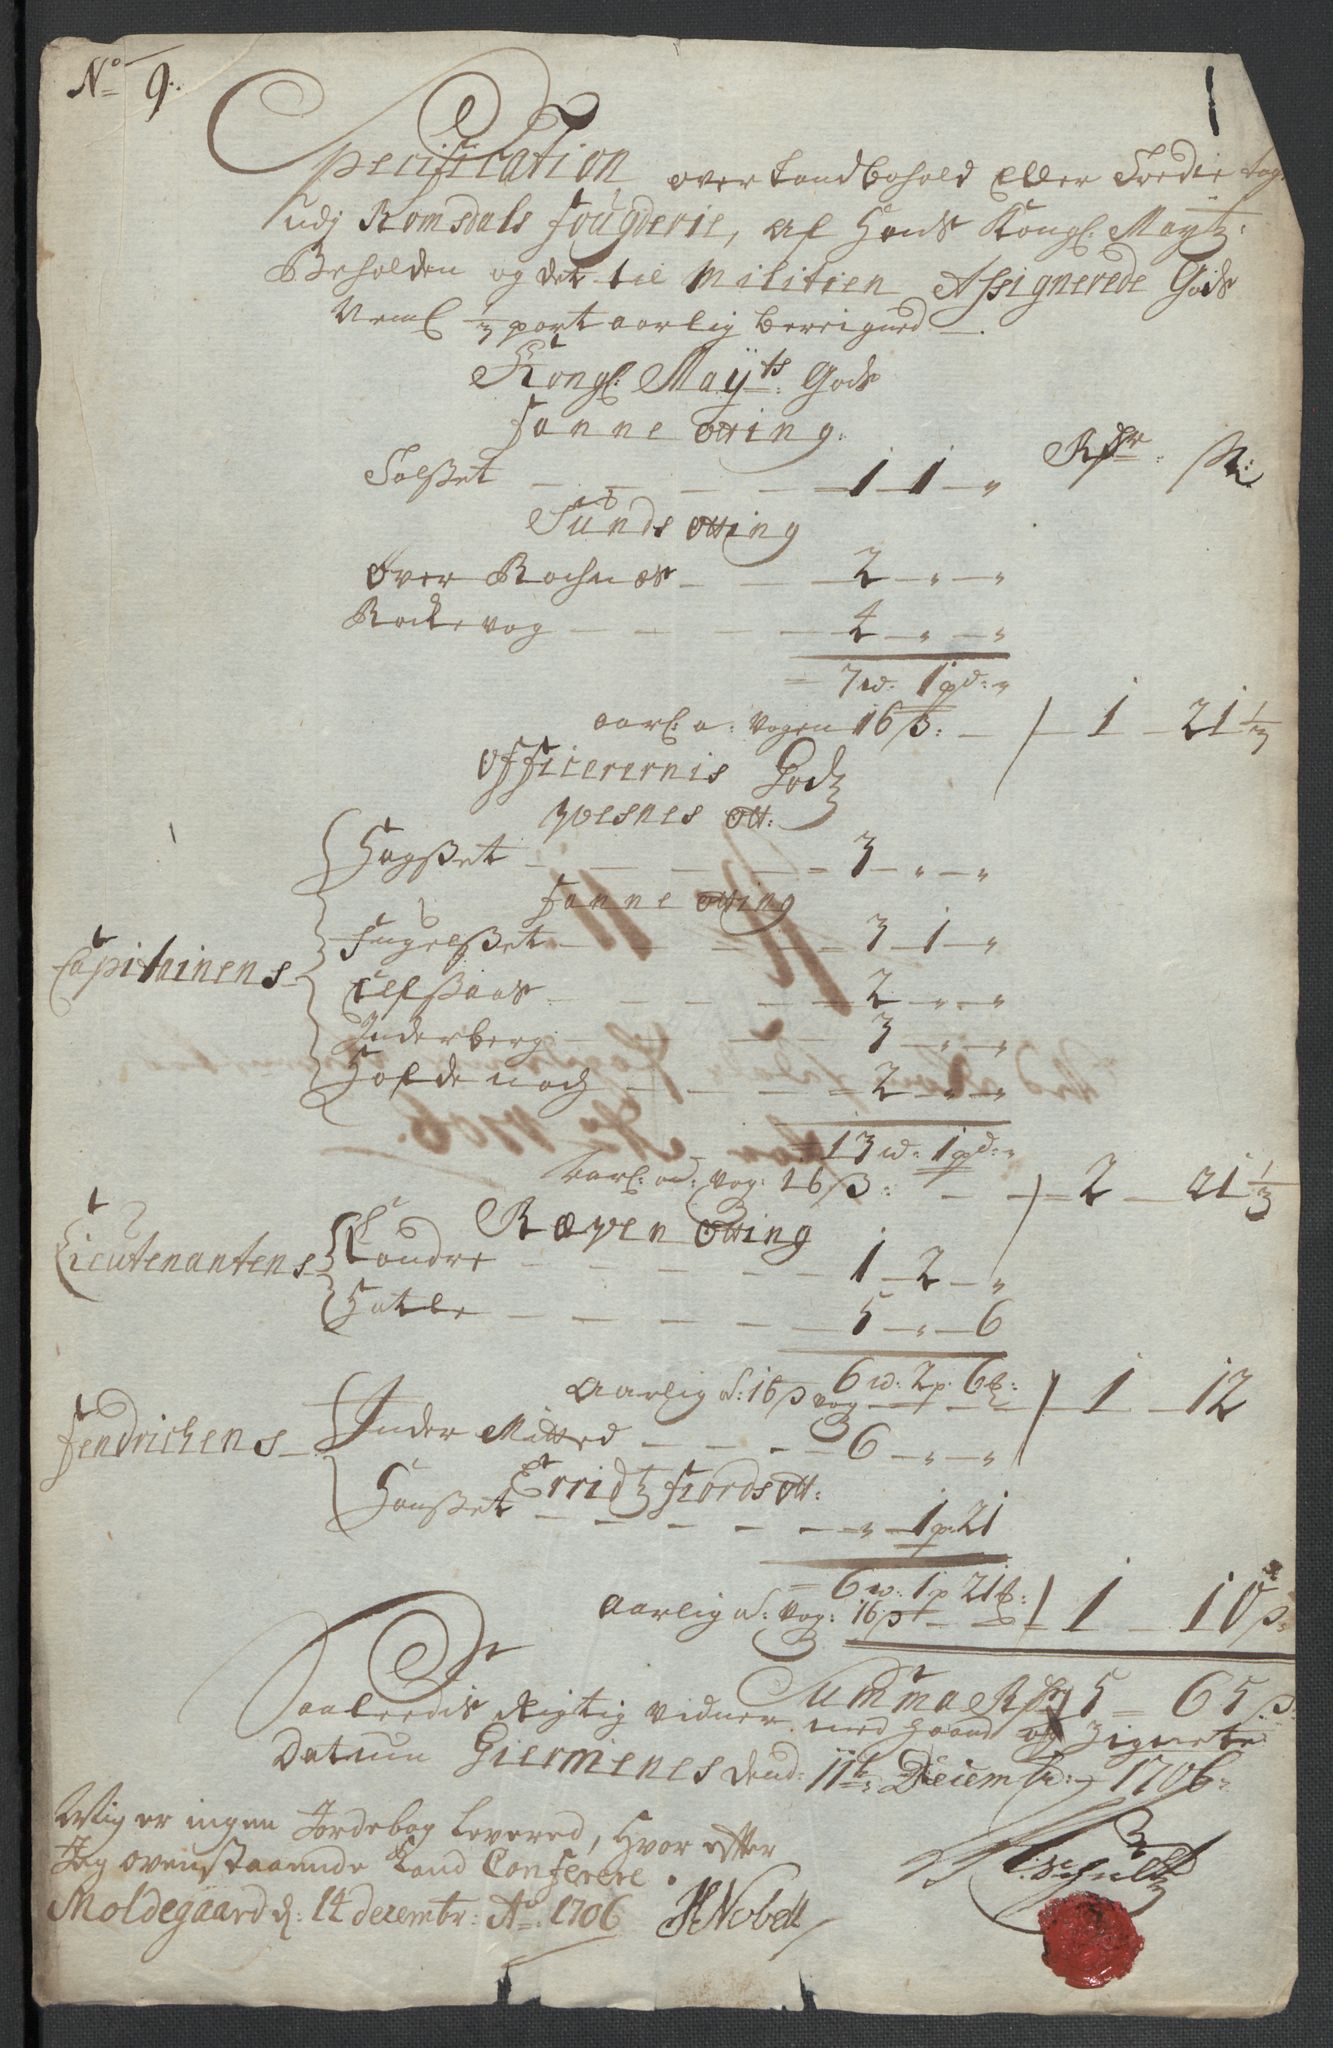 No 9.
Specification over Landbohold Eller Tredie tag
udj Romsdals fougderie, af Hans Kongl: Maytz:
Beholden og det til Militien Assignerede Gods
Neml 1/3 part aarlig berreigned
Kongl: Mayts: Gods
Fanne otting:
Rdr: ß:
Solßet — 1 — 1 — "
Sunds otting
Over Rochnæs — 2 — " — "
Rochevog — 4 — " — "
7 w: 1 pd: "
aarl: a: Vogen 16 ß: — 1 — 21 1/3
Officerernis Godz
Wesnes Ott:
Hagßet — 3 — " — "
Fanne otting
Capitainens
Fugelßet — 3 — 1 — "
Elfsaas — 2 — " — "
Inderberg — 3 — " — "
Holde noch — 2 — " — "
13 w: 1 pd: "
aarl: ad: vog: 16 ß: — 2 — 21 1/3
Ræven Otting
Lieutenantens
Landre — 1 — 2 — "
Hatle — 5 — " — 6
6 w: 2 p: 6
Aarlig a: 16 ß vog — 1 — 12
Fendrichens
Inder Mitted — 6 — " — "
Erridtzfiords ott:
Hanßet — " — 1 p: 21
6 w: 1 p 21
Aarlig a: Vog: 16 ß — 1 — 10 ß
Summa Rdr 5 — 65 ß
Saaleedis Rigtig vidner med Haand og Zignete
Datum Giermenes dend: 11te Decembr: 1706
Mig er ingen Jordebog Levered, Hvor efter
Jeg ovenstaaende Kand Conferere.
Moldegaard d: 14 decembr: Ao: 1706 HNobell
Schultz